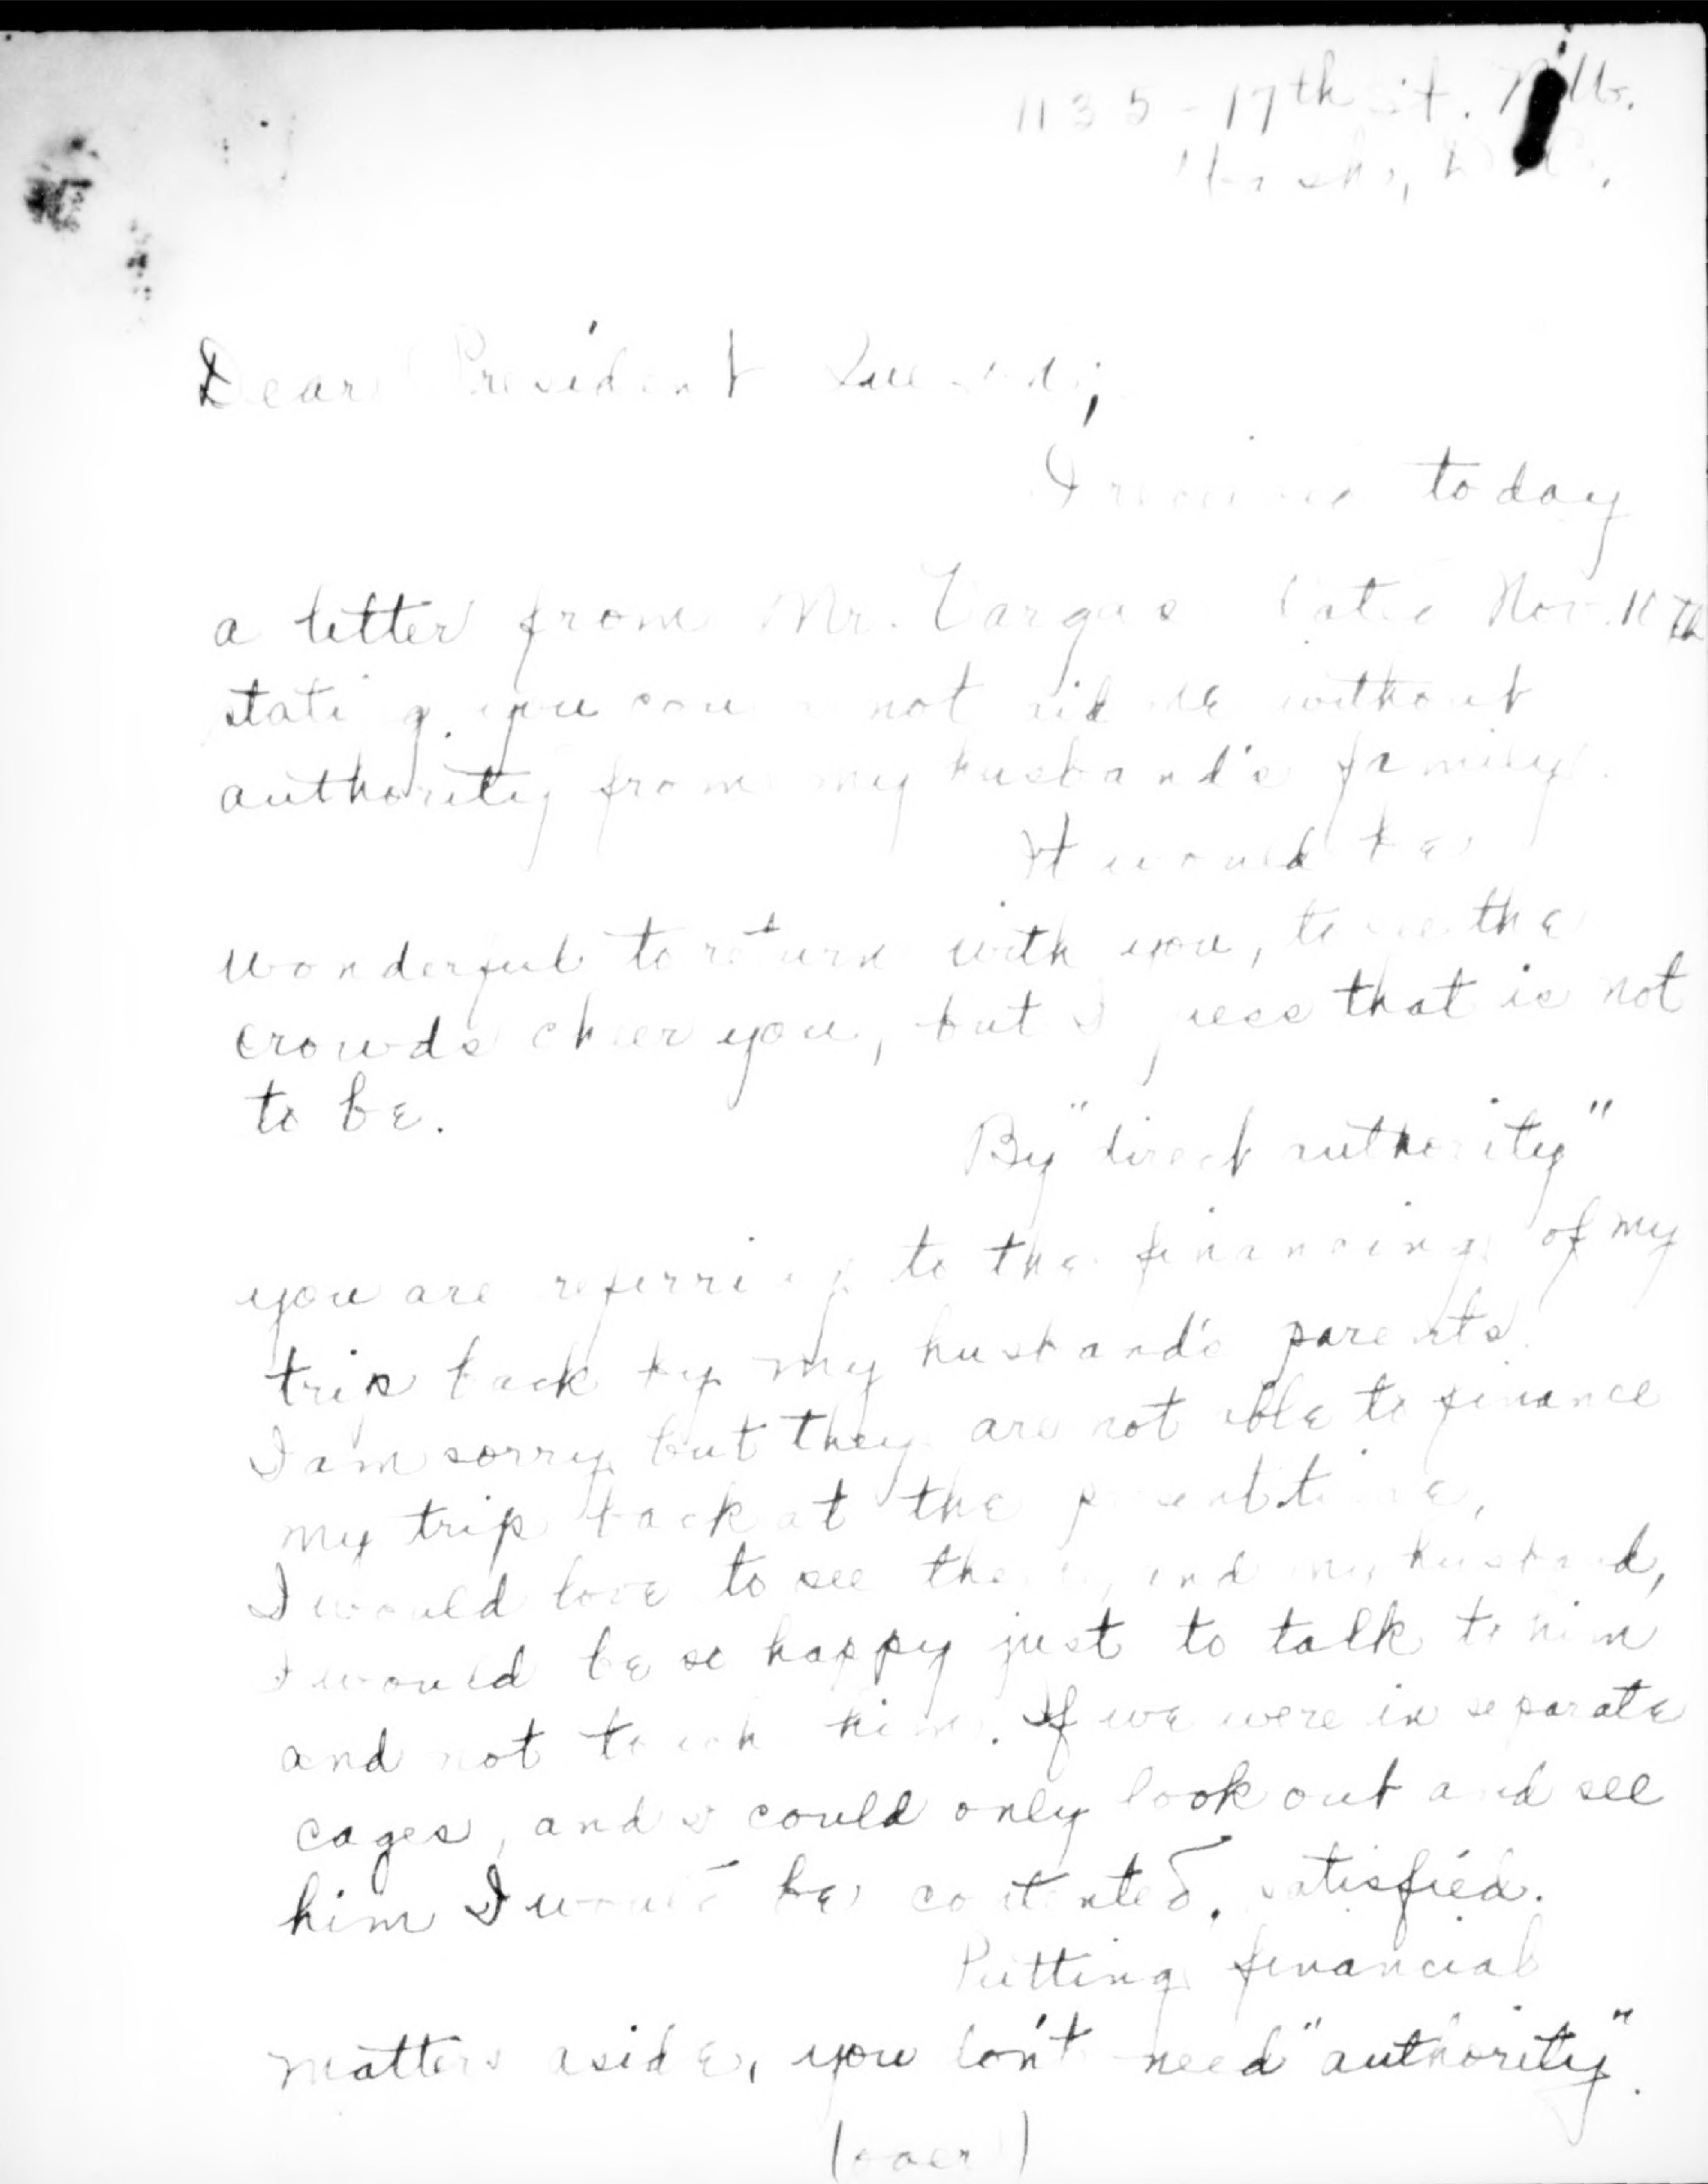 1135 - 17th St. N.W.
Wash., D.C.
Dear President Quezon;
I received today
a letter from Mr. Vargas dated Nov. 11th
stating you could not aid me without
authority from my husband's family.
It would be
wonderful to return with you, to see the
crowds cheer you, but I guess that is not
to be.
By "direct authority"
you are referring to the financing of my
trip back by my husband's parents.
I am sorry but they are not able to finance
my trip back at the present time.
I would love to see them, and my husband,
I would be so happy just to talk to him
and not touch him. If we were in separate
cages, and I could only look out and see
him I would be contented, satisfied.
Putting financial
matters aside, you don't need "authority".
(over)